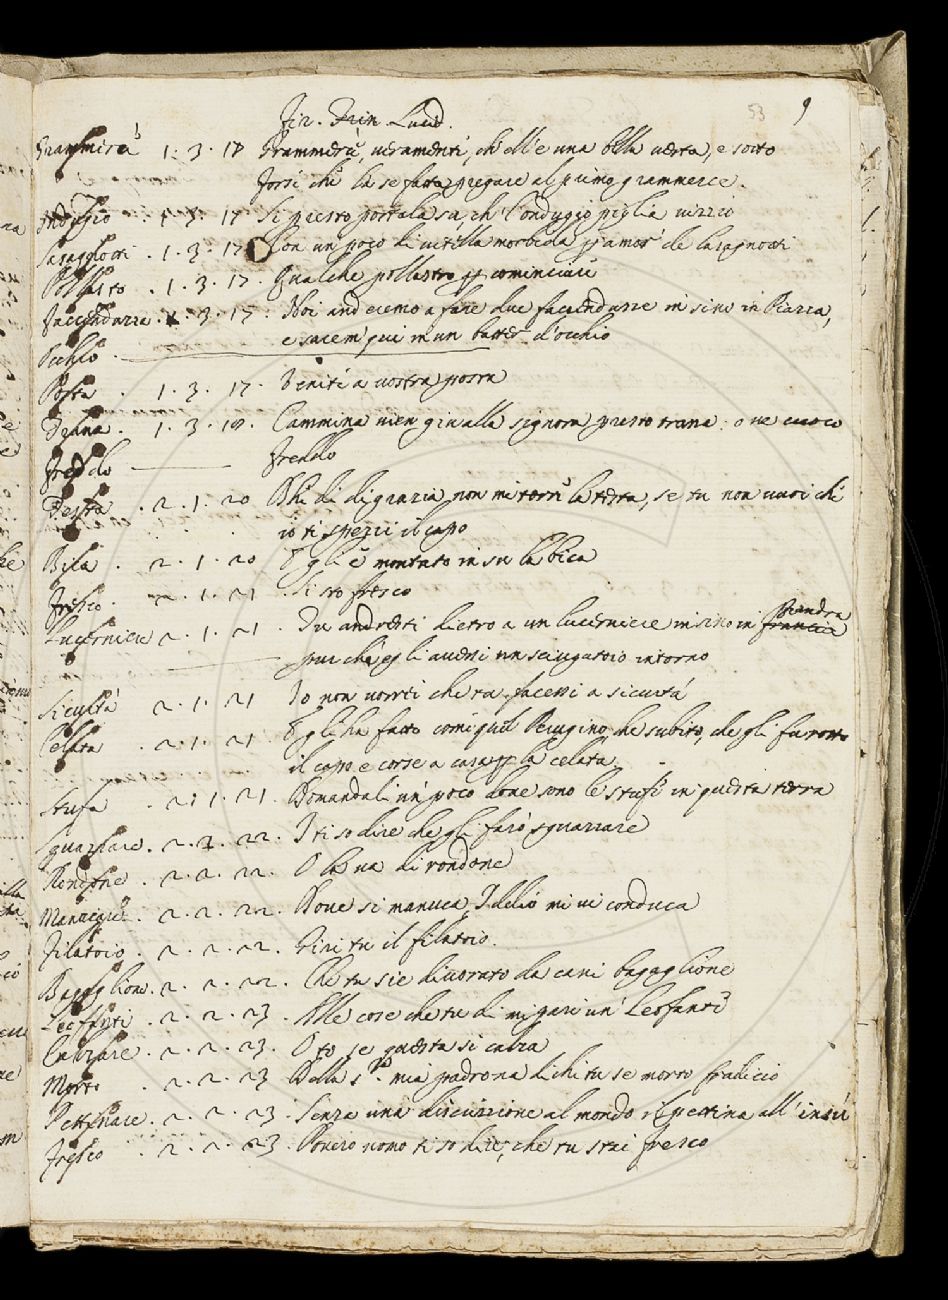 53 9
Fir. Trin. Lucid.
Grammercè 1. 3. 17 Grammercè, veramenti, ch'ell'e una bella uesta, e sotto
forsi che la se fatta pregare al primo grammerce.
Indugio 1. 3. 17 Sì presto portala su, ch l'onduggio piglia vizzio
Lasagnotti . 1. 3. 17 Con un poco di vitella morbida p amor de lasagnotti
Pollastro . 1. 3. 17. Qualche pollastro p cominciare
Faccenduzza . 1. 3. 17. Noi anderemo a fare due faccenduzze in sino in Piazza,
e sarem qui in un batter d'occhio
Occhio
Posta . 1. 3. 17. Venite a vostra posta
Trana . 1. 3. 18. Cammina vien giu alla signora presto trana: o ve cuoco
freddo freddo
Testa . 2. 1. 20 Ehi di di grazia non mi torre la testa, se tu non vuoi chi
io ti spezzi il capo
Bica . 2. 1. 20 Egli è montato in su la bica
Fresco . 2. 1. 21 . Si sto fresco
Lucerniere 2. 1. 21 . Tu andresti dietro a un lucerniere in sino in francia Fiandra
pur ch'egli auessi un sciugatoio intorno
Sicurtà 2. 1. 21 Io non vorrei che tu facessi a sicurtà
Celata . 2. 1. 21 Egli ha fatto come quel Perugino, che subito, che gli fu rotto
il capo e corse a casa p la celata
Stufa . 2. 1. 21. Domandali un poco doue sono le stufe in questa terra
Sguazzare . 2. 2. 22. I ti so dire che gli farò sguazzare
Rondone . 2. 2. 22. O la va di rondone
Manucare . 2. 2. 22. Doue si manuca, Iddio mi vi conduca
Filatoio . 2. 2. 22. Giri tu il filatoio.
Bagaglione . 2. 2. 22. Che tu sie diuorato da cani bagaglione
Leofanti . 2. 2. 23. Alle cose che tu di mi pari un Leofante
Calzare . 2. 2. 23. O to se questa si calza
Morto . 2. 2. 23 Della s.ra mia padrona dichi tu se morto fradicio
Pettinare 2. 2. 23. Senza una discrizzione al mondo si pettina all'insù
Fresco . 2. 2. 23. Pouero uomo ti so dire, che tu stai fresco